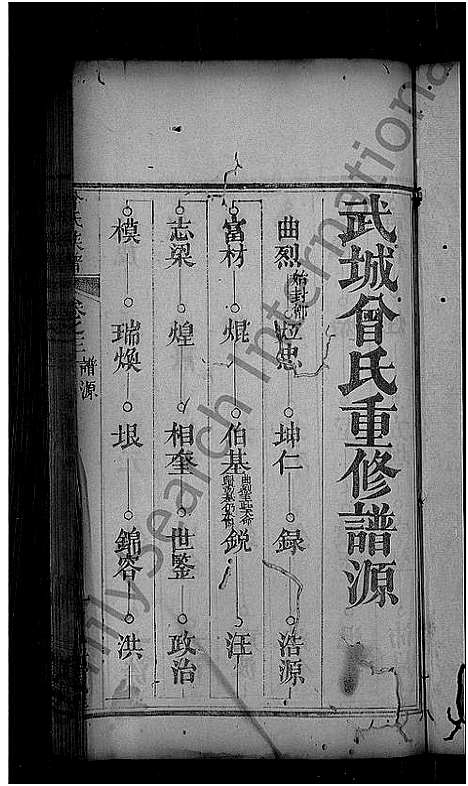 武城曾氏重修譜源
曲烈 始封鄫 巫忠 坤仁 録 浩源
富材 焜 伯基 鋭 汪
志梁 煌 相奎 世鑒 政治
模 瑞煥 垠 錦容 洪
卷之三 譜源
FamilySearch International